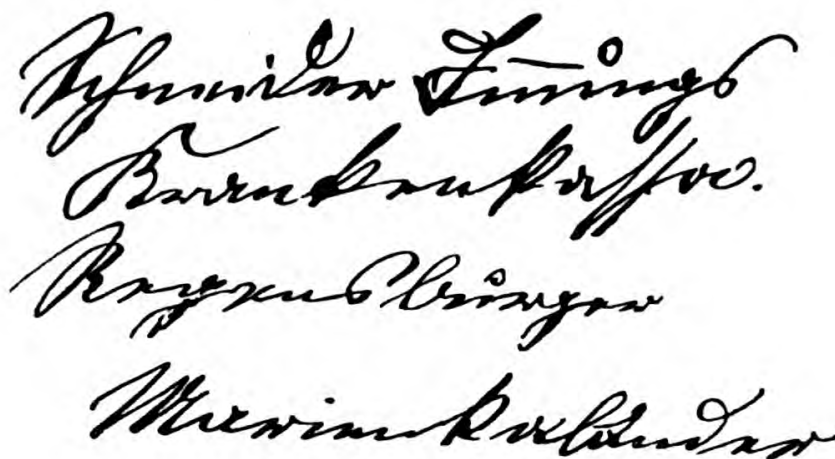 Schneider Innungs
Krankenkassa.
Regensburger
Marienkalander